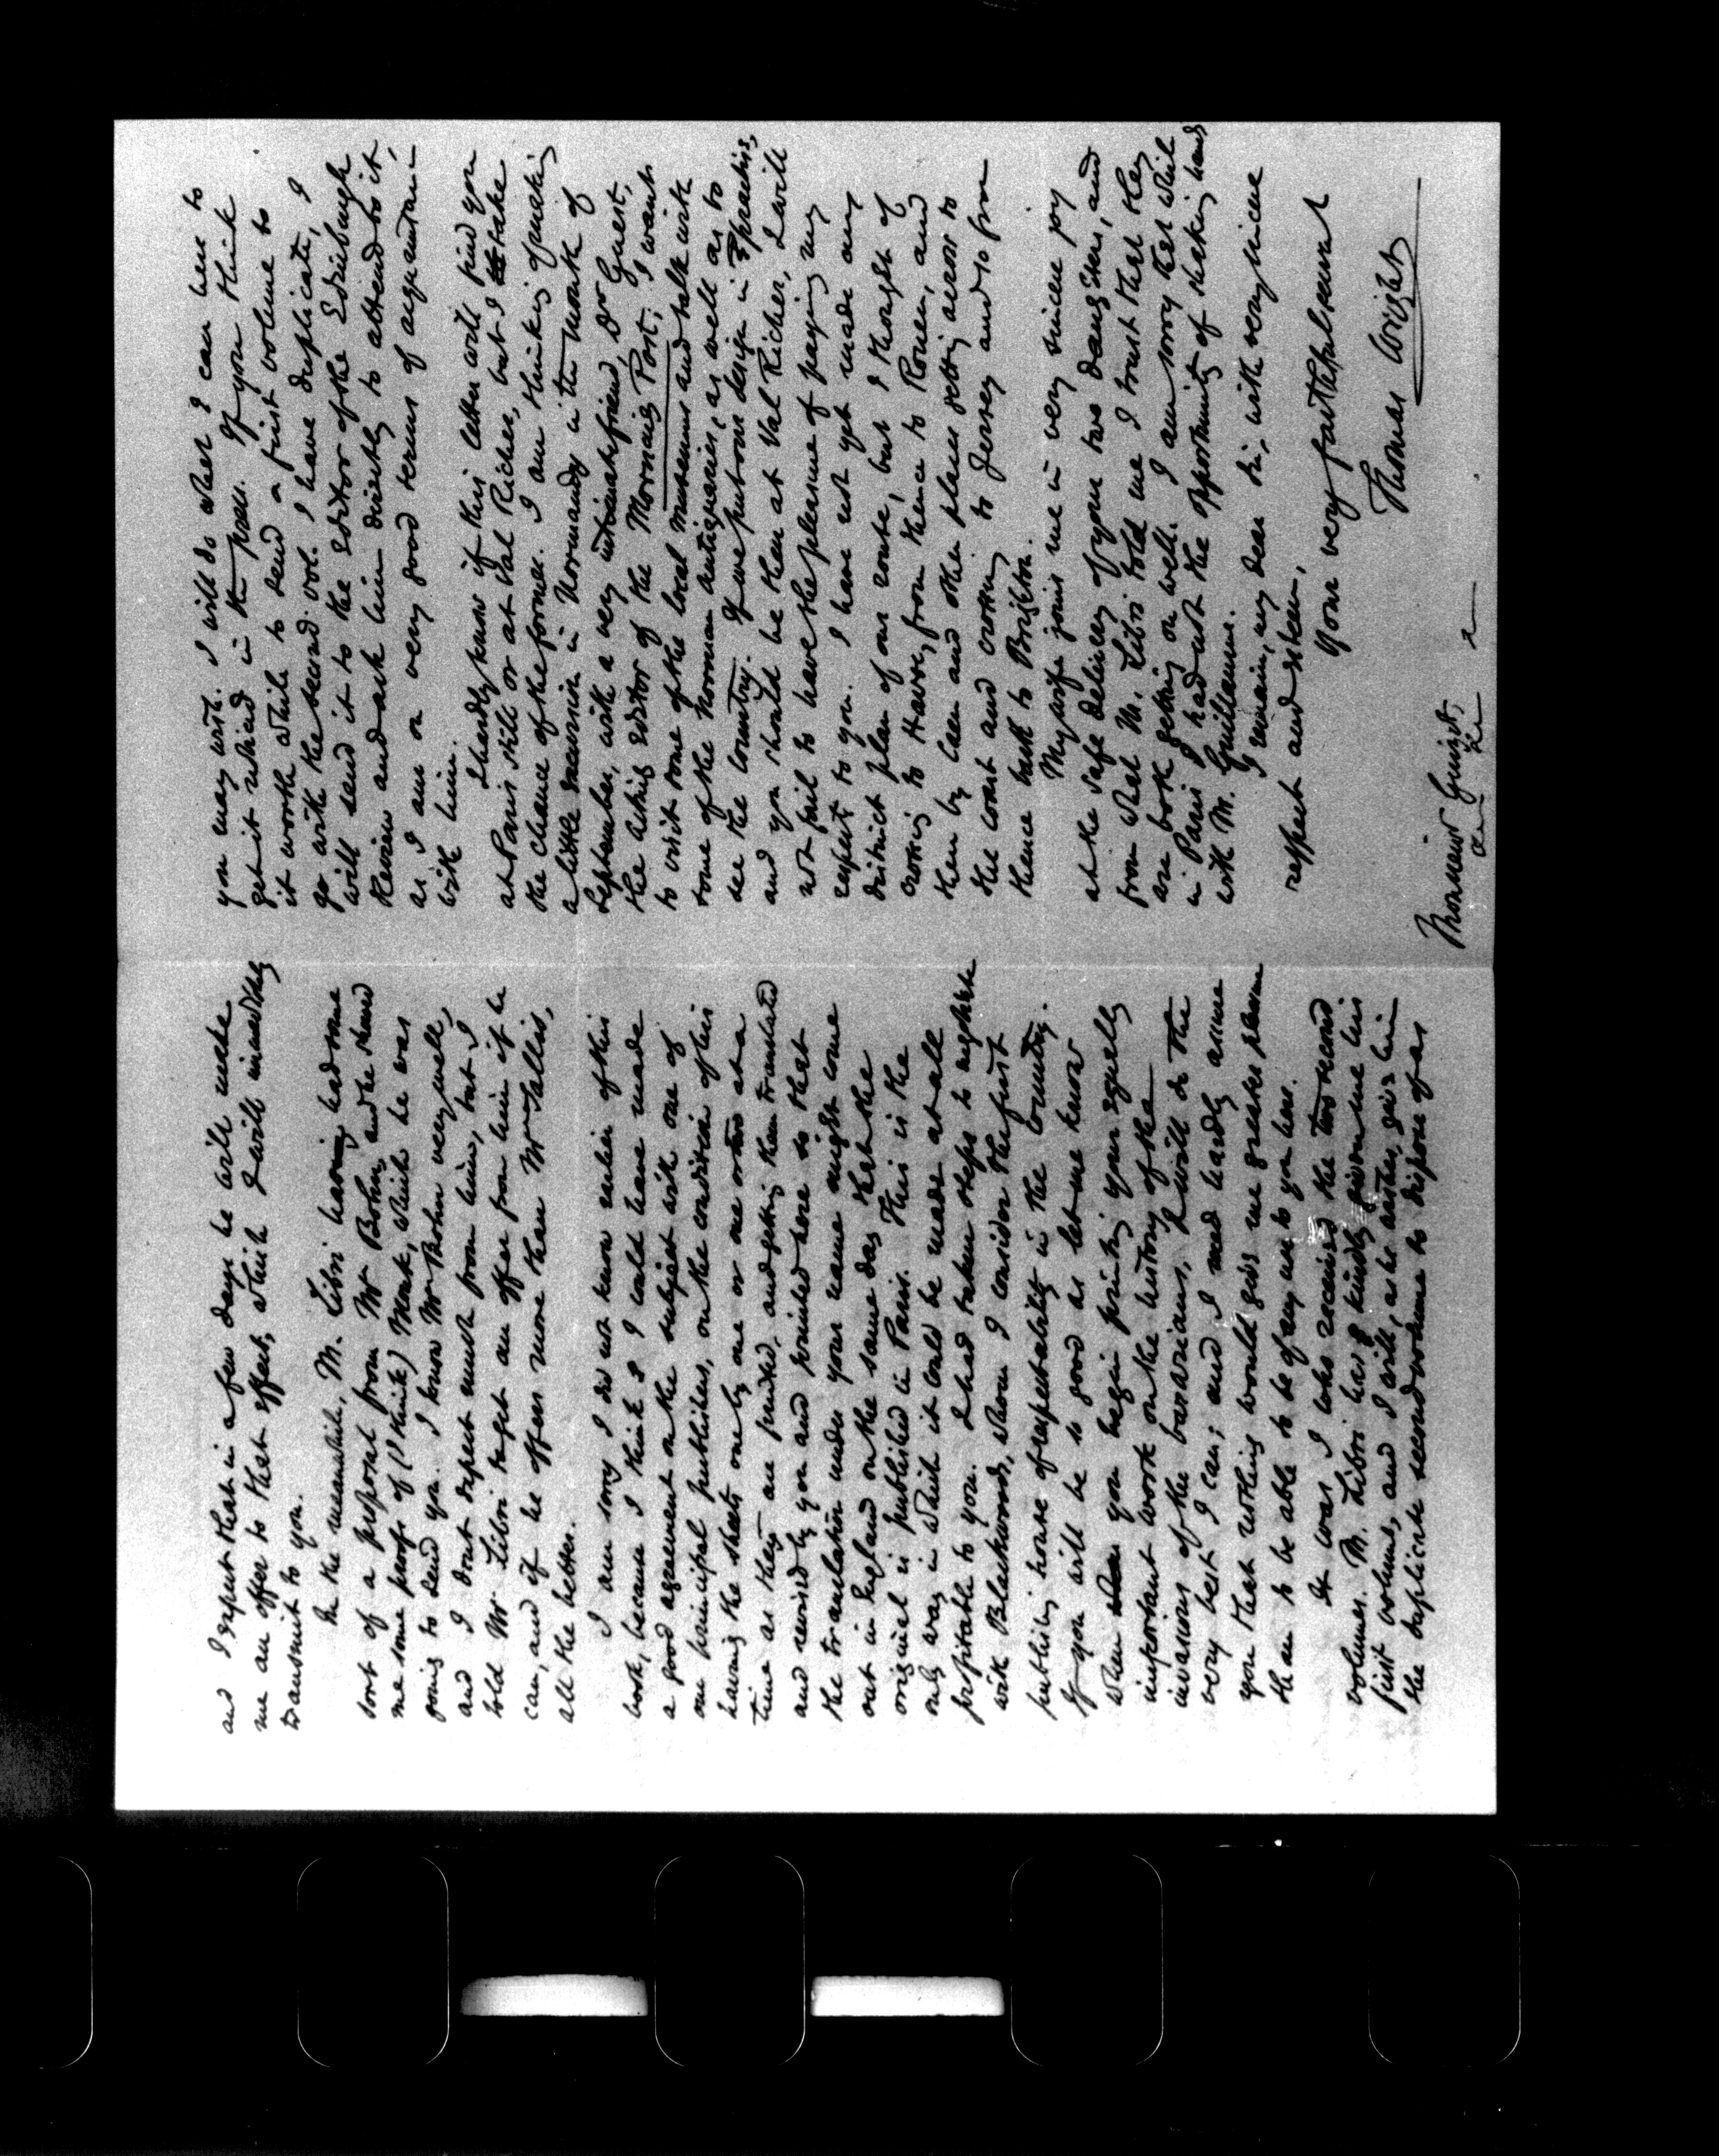 and I expect that in a few days he will make
me an offer to that effect, which I will immediately
transmit to you.
In the meanwhile, M. Libri having had some
sort of a proposal from Mr Bohn, and he shewed
me some proofs of (I think) Monk, which he was
going to send you. I know Mr Bohn very well,
and I dont expect much from him, but I
told Mr. Libri to get an offer from him if he
can, and if he offers more than Mr Tallis,
all the better.
I am sorry I did not know earlier of this
book, because I think I could have made
a good agreement on the subject with one of
our principal publishers, on the condition of his
having the sheets one by one or one or two at a
time as they are printed, and getting them translated
and revised by you and printed here so that
the translation under your name might come
out in England on the same day that the
original is published in Paris. This is the
only way in which it could be made at all
profitable to you. I had taken steps to negotiate
with Blackwood, whom I consider the first
publishing house of respectability in the country.
If you will be so good as let me know
when you begin printing your equally
important work on the history of the
invasions of the barbarians, I will do the
very best I can; and I need hardly assure
you that nothing would give me greater pleasure
than to be able to be of any use to you here.
It was I who received the two second
volumes. M. Libri has kindly given me his
first volume, and I will, as he wishes, give him
the duplicate second volume to dispose of as
you may wish. I will do what I can here to
get it noticed in the press. If you think
it worth while to send a first volume to
go with the second vol. I have duplicate, I
will send it to the editor of the Edinburgh
Review and ask him directly to attend to it,
as I am on very good terms of acquaintance
with him.
I hardly know if this letter will find you
at Paris still or at Val Richer, but I take
the chance of the former. I am thinking of making
a little excursion in Normandy in the month of
September, with a very intimate friend, Dr Guest,
the acting editor of the Morning Post; I want
to visit some of the local museums and talk with
some of the Norman antiquaries, as well as to
see the country. If we put our design in practise,
and you should be then at Val Richer, I will
not fail to have the pleasure of paying my
respects to you. I have not yet made any
distinct plan of our route, but I thought of
crossing to Havre, from thence to Rouen, and
then by Caen and other places getting across to
the coast and crossing to Jersey and so from
thence back to Brighton.
My wife joins me in very sincere joy
at the safe delivery of your two daughters, and
from what M. Libri told me I trust that they
are both getting on well. I am sorry that while
in Paris I had not the opportunity of shaking hands
with M. Guillaume.
I remain, my dear Sir, with very sincere
respect and esteem,
Your very faithful servant
Thomas Wright
Monsieur Guizot,
&c &c &c